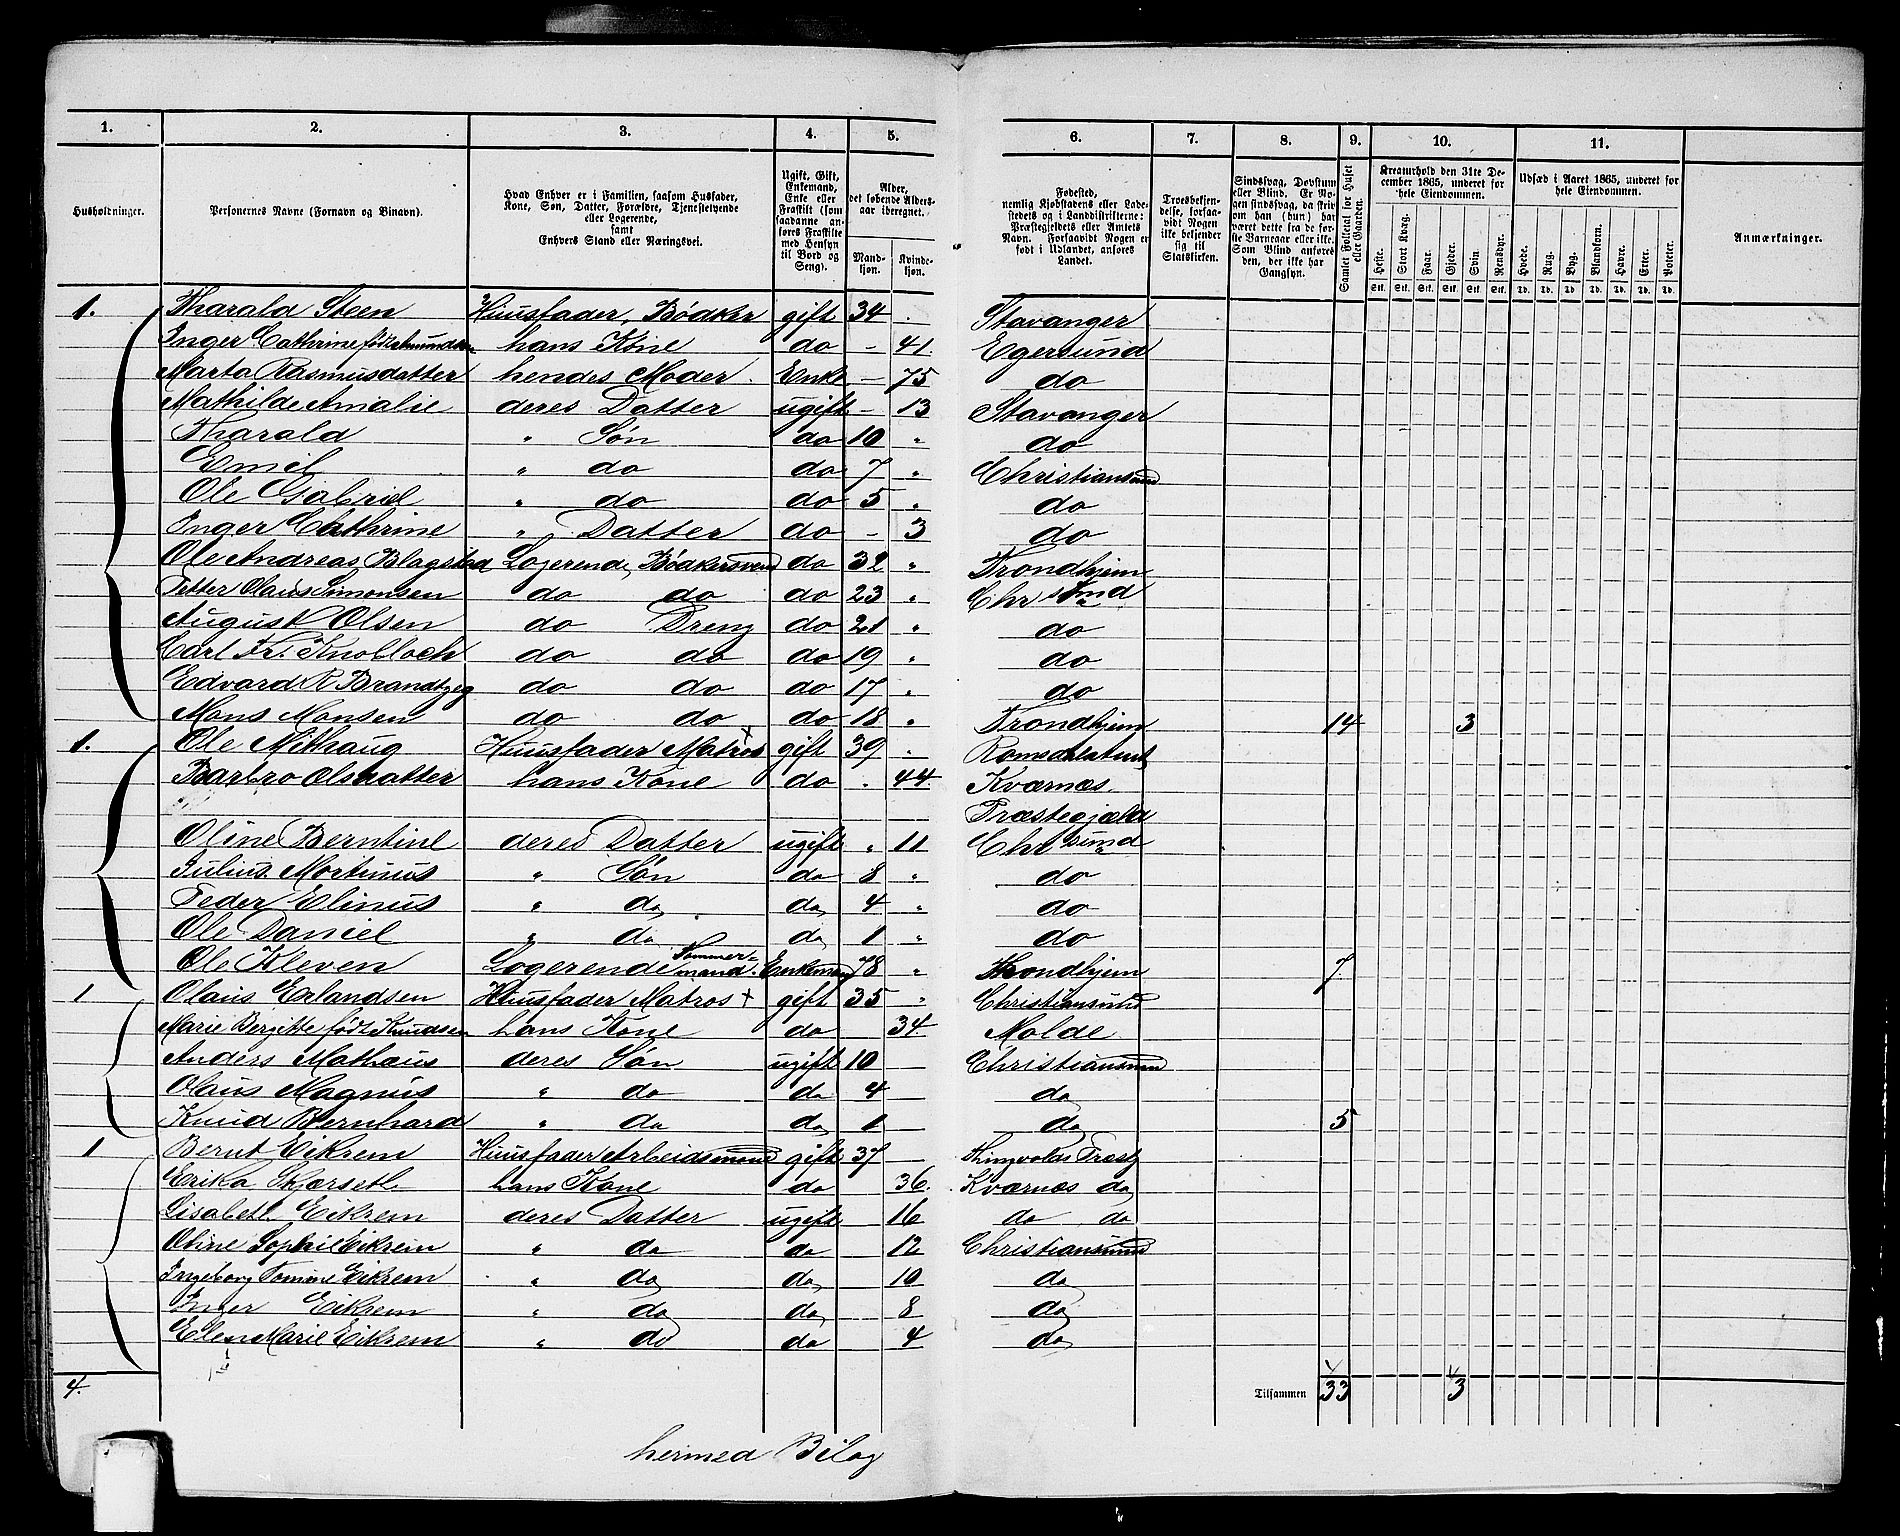 1. 2. 3. 4. 5. 6. 7. 8. 9. 10. 11.
Husholdninger.
Personernes Navne (Fornavn og Binavn).
Hvad Enhver er i Familien, saasom Husfader,
Kone, Søn, Datter, Forældre, Tjenestetyende
eller Logerende,
samt
Enhvers Stand eller Næringsvei.
Ugift, Gift,
Enkemand,
Enke eller
Fraskilt (som
saadanne an-
føres Fraskilte
med Hensyn
til Bord og
Seng).
Alder,
det løbende Alders-
aar iberegnet.
Mand-
kjøn.
Kvinde-
kjøn.
Fødested,
nemlig Kjøbstadens eller Lade-
stedets og i Landdistrifterne:
Præstegjeldets eller Amtets
Navn. Forsaavidt Nogen er
født i Udlandet, anføres
Landet.
Troesbekjen-
delse, forsaa-
vidt Nogen
ikke bekjender
sig til
Statskirken.
Sindssvag, Døvstum
eller Blind. Er No-
gen sindssvag, da skriv
om han (hun) har
været dette fra de før-
ste Barneaar eller ikke.
Som Blind anføres
den, der ikke har
Gangsyn.
Samlet Folketal for Huset
eller Gaarden.
Kreaturhold den 31te De-
cember 1865, underet for
hele Eiendommen.
Heste. Stort Kvæg. Faar. Gjeder. Svin. Rensdyr.
Stk. Stk. Stk. Stk. Stk. Stk.
Udsæd i Aaret 1865, underet for
hele Eiendommen.
Hvede. Rug. Byg. Blandkorn. Havre. Erter. Poteter.
Td. Td. Td. Td. Td. Td. Td.
Anmærkninger.
1. Tharald Steen Huusfader, Bødker gift 34 . Stavanger
Inger Cathrine født Amundsen hans Kone do - 41. Egersund
Marta Rasmusdatter hendes Moder. Enke - 75 do
Mathilde Amalie deres Datter ugift - 13 Stavanger
Tharald " Søn do 10 " do
Emil " do do 7 " Christiansund
Ole Gabriel " do do 5 " do
Inger Cathrine " Datter do - 3 do
Ole Andreas Blagstad Logerende, Bødkersvend do 32 " Trondhjem
Petter Olaus Simonsen do do do 23 " Chrsund
August Olsen do Dreng do 21 " do
Carl Fr. Knobloch do do do 19 . do
Edvard R Brandtzeg do do do 17 " do
Mons Monsen do do do 18 " Trondhjem 14 3
1. Ole Mithaug Huusfader Matros + gift 39 . Romsdalsamt
Barbro Olsdatter hans Kone do . 44. Kværnæs
Præstegjæld
Oline Berntine deres Datter ugift " 11 Chrsund
Julius Mortinus " Søn do 8 " do
Peder Elinus " do do 4 " do
Ole Daniel " do do 1 " do
Ole Kleven Logerende Tømmer-
mand. Enkemand 78 " Trondhjem 7
1 Olaus Erlandsen Huusfader Matros + gift 35 " Christiansund
Marie Bergitte født Knudsen hans Kone do 34. Molde
Anders Mathæus deres Søn ugift 10 Christiansund
Olaus Magnus " do do 4 do
Knud Bernhard " do do 1 do 5
1 Bernt Eikrem Huusfader Arbeidsmand gift 37 Thingvolds Præstg
Erika Skjørsetl. hans Kone do 36. Kværnæs do
Lisabeth Eikrem deres Datter ugift 16 do do
Oline Sophie Eikrem " do do 12 Christiansund
Ingeborg Tomine Eikrem " do do 10 do
Inger Eikrem " do do 8 do
Elen Marie Eikrem " do do 4 do
4. Tilsammen 33 3
hermed Bilag